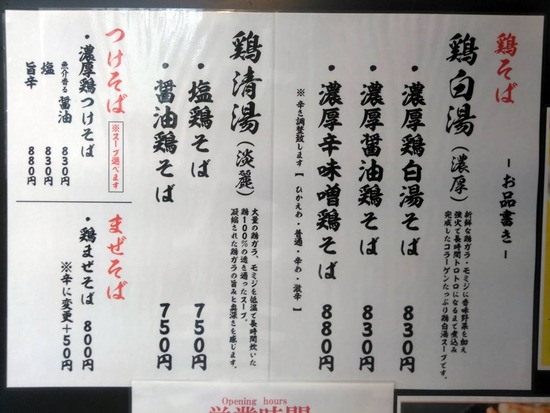 鶏そば
－お品書き－
鶏白湯（濃厚）
新鮮な鶏ガラ・モミジに香味野菜を加え
強火で長時間トロトロになるまで煮込み
完成したコラーゲンたっぷり鶏白湯スープです。
・濃厚鶏白湯そば 830円
・濃厚醤油鶏そば 830円
・濃厚辛味噌鶏そば 880円
※辛さ調整致します【ひかえめ・普通・辛め・激辛】
鶏清湯（淡麗）
大量の鶏ガラ、モミジを低温で長時間炊いた
鶏100％の透き通ったスープ。
凝縮された鶏ガラの旨みと奥深さを感じます。
・塩鶏そば 750円
・醤油鶏そば 750円
つけそば
※スープ選べます
・濃厚鶏つけそば
魚介香る醤油 830円
塩 830円
旨辛 880円
まぜそば
・鶏まぜそば 800円
※辛に変更＋50円
Opening hours
営業時間